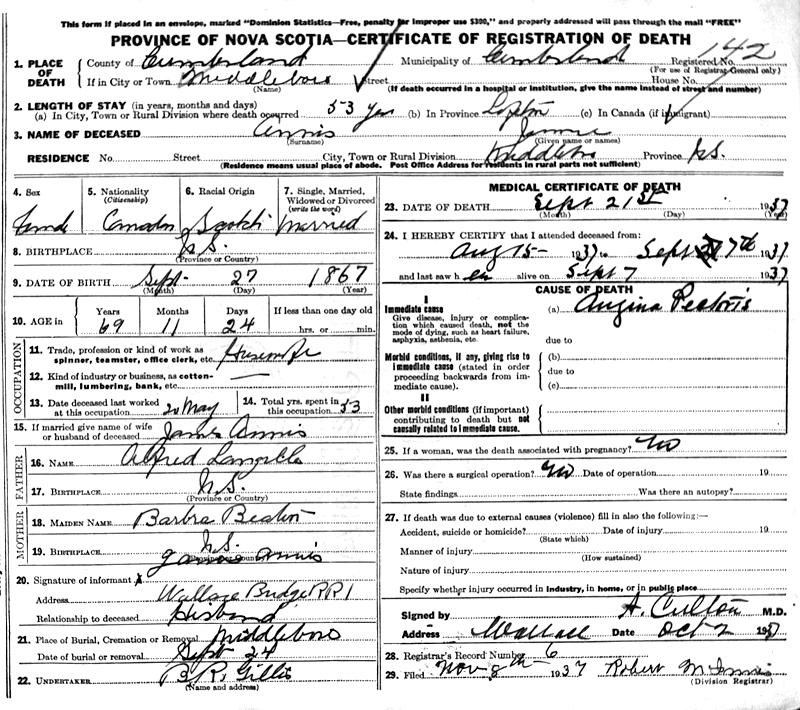 This form if placed in an envelope, marked "Dominion Statistics—Free, penalty for improper use $300," and properly addressed will pass through the mail "FREE"
PROVINCE OF NOVA SCOTIA—CERTIFICATE OF REGISTRATION OF DEATH
1. PLACE OF DEATH County of Cumberland Municipality of Cumberland Registered No. 142
(For use of Registrar General only)
If in City or Town Middleboro Street House No.
(Name) (If death occurred in a hospital or institution, give the name instead of street and number)
2. LENGTH OF STAY (in years, months and days)
(a) In City, Town or Rural Division where death occurred 53 yrs (b) In Province (c) In Canada (if immigrant)
3. NAME OF DECEASED Annis
(Surname) (Given name or names)
RESIDENCE No. Street City, Town or Rural Division Middleboro Province N.S.
(Residence means usual place of abode. Post Office Address for residents in rural parts not sufficient)
4. Sex 5. Nationality (Citizenship) 6. Racial Origin 7. Single, Married, Widowed or Divorced (write the word)
Scotch Married
8. BIRTHPLACE N.S.
(Province or Country)
9. DATE OF BIRTH Sept 27 1867
(Month) (Day) (Year)
10. AGE in Years Months Days If less than one day old
69 11 24 hrs. or min.
OCCUPATION
11. Trade, profession or kind of work as spinner, teamster, office clerk, etc.
12. Kind of industry or business, as cotton-mill, lumbering, bank, etc. —
13. Date deceased last worked at this occupation 20 May 14. Total yrs. spent in this occupation 53
15. If married give name of wife or husband of deceased James Annis
FATHER
16. NAME Alfred Langille
17. BIRTHPLACE N.S.
(Province or Country)
MOTHER
18. MAIDEN NAME Barbra
19. BIRTHPLACE N.S.
(Province or country)
20. Signature of informant James Annis
Address Wallace Bridge RR1
Relationship to deceased Husband
21. Place of Burial, Cremation or Removal Middleboro
Date of burial or removal Sept 24
22. UNDERTAKER Gillis
(Name and address)
MEDICAL CERTIFICATE OF DEATH
23. DATE OF DEATH Sept 21st 1937
(Month) (Day) (Year)
24. I HEREBY CERTIFY that I attended deceased from:
Aug 15— 1937 to Sept 7th 1937
and last saw her alive on Sept 7 1937
CAUSE OF DEATH
I
Immediate cause (a) Angina Pectoris
Give disease, injury or complication which caused death, not the mode of dying, such as heart failure, asphyxia, asthenia, etc.
due to
Morbid conditions, if any, giving rise to immediate cause (stated in order proceeding backwards from immediate cause).
(b)
due to
(c)
II
Other morbid conditions (if important) contributing to death but not causally related to immediate cause.
25. If a woman, was the death associated with pregnancy? No
26. Was there a surgical operation? No Date of operation 19
State findings Was there an autopsy?
27. If death was due to external causes (violence) fill in also the following:—
Accident, suicide or homicide? Date of injury 19
(State which)
Manner of injury
(How sustained)
Nature of injury
Specify whether injury occurred in industry, in home, or in public place
Signed by A. Culton M.D.
Address Wallace Date Oct 2 1937
28. Registrar's Record Number 6
29. Filed Nov 8th 1937 Robert McInnis
(Division Registrar)